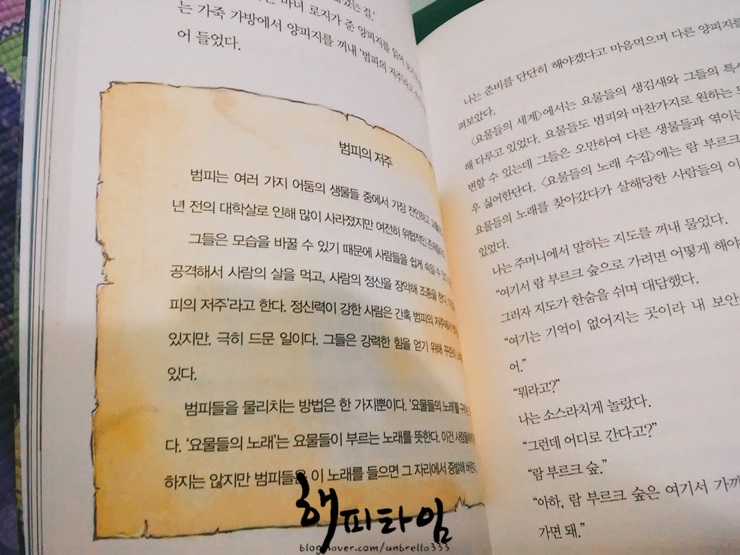 는 가죽 가방에서 양피지를 꺼내 '범피의 저주'
어 들었다.
범피의 저주
범피는 여러 가지 어둠의 생물들 중에서 가장 잔인하고
년 전의 대학살로 인해 많이 사라졌지만 여전히 위협적인
그들은 모습을 바꿀 수 있기 때문에 사람들을 쉽게 속일 수
공격해서 사람의 살을 먹고, 사람의 정신을 장악해 조종을 한다.
피의 저주'라고 한다. 정신력이 강한 사람은 간혹 범피의 저주에서
있지만, 극히 드문 일이다. 그들은 강력한 힘을 얻기 위해
있다.
범피들을 물리치는 방법은 한 가지뿐이다. '요물들의 노래'를
다. '요물들의 노래'는 요물들이 부르는 노래를 뜻한다. 이건
하지는 않지만 범피들은 이 노래를 들으면 그 자리에서
나는 준비를 단단히 해야겠다고 마음먹으며 다른 양피지를
펴보았다.
〈요물들의 세계〉에서는 요물들의 생김새와 그들의
해 다루고 있었다. 요물들도 범피와 마찬가지로 원하는
변할 수 있는데 그들은 오만하여 다른 생물들과 엮이는
우 싫어한단다. 〈요물들의 노래 수집〉에는 람 부르크
요물들의 노래를 찾아갔다가 살해당한 사람들의
있었다.
나는 주머니에서 말하는 지도를 꺼내 물었다.
"여기서 람 부르크 숲으로 가려면 어떻게 해야
그러자 지도가 한숨을 쉬며 대답했다.
"여기는 기억이 없어지는 곳이라 내 보안
어."
"뭐라고?"
나는 소스라치게 놀랐다.
"그런데 어디로 간다고?"
"람 부르크 숲."
"아하, 람 부르크 숲은 여기서
가면 돼."
해피타임
blog.naver.com/unbrella333